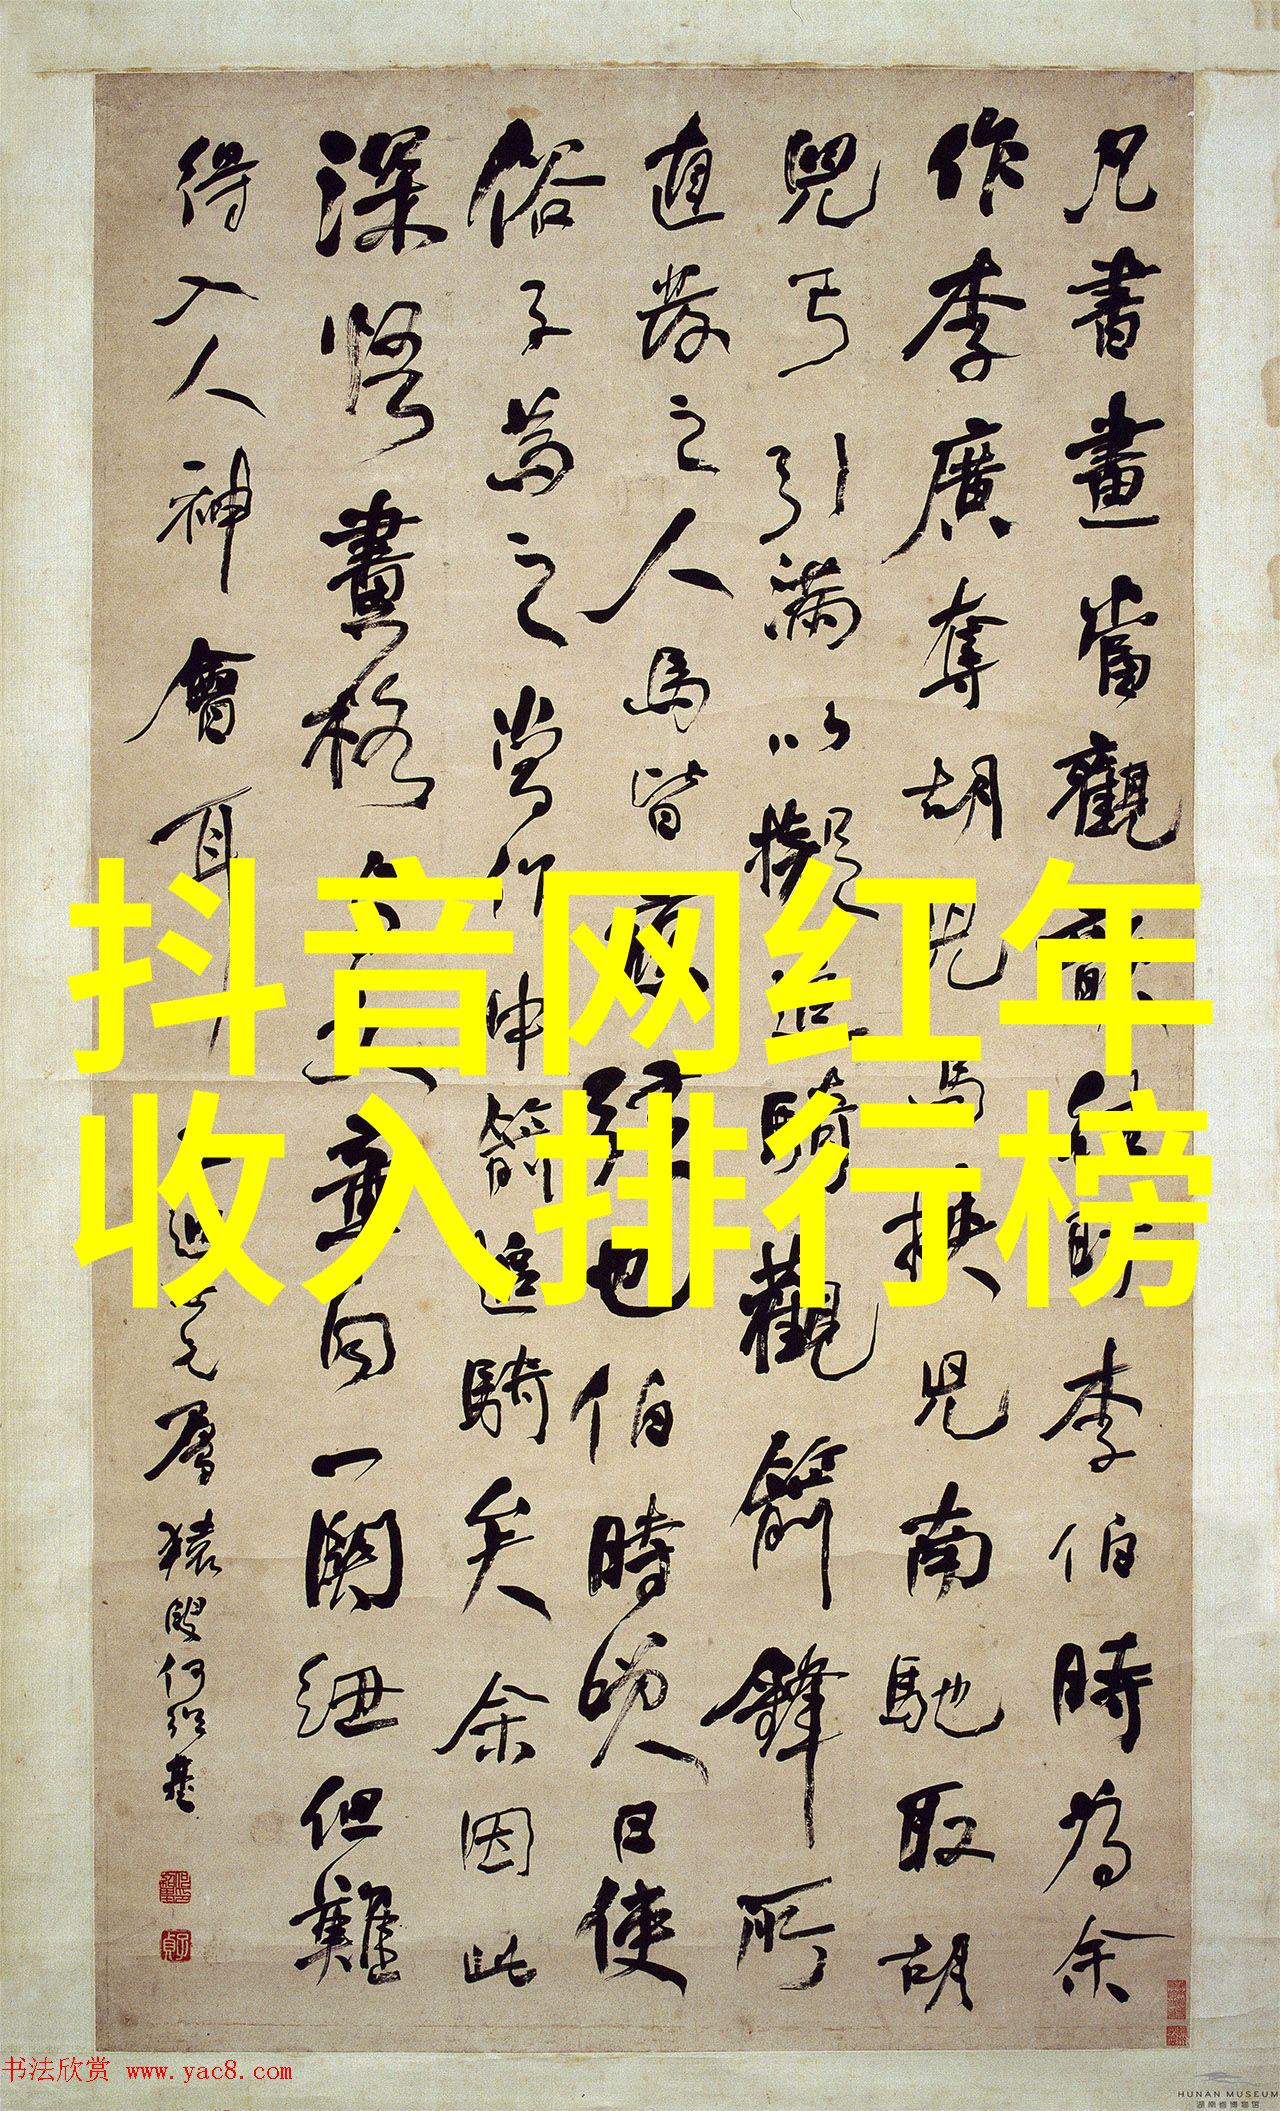 凡書畫當觀韻往時李伯時為余
作李廣奪胡兒馬挾兒南馳取胡
兒弓引滿以擬追騎觀箭鋒所
直發之人馬皆應弦也伯時笑曰使
俗子為之當作中箭追騎矣余因此
深悟畫格此與文章同一關紐但難
得入人神會耳
猿叟何紹基
抖音网红年
收入排行榜
书法欣赏 www.yac8.com
HUNAN MUSEUM
湖南省博物馆